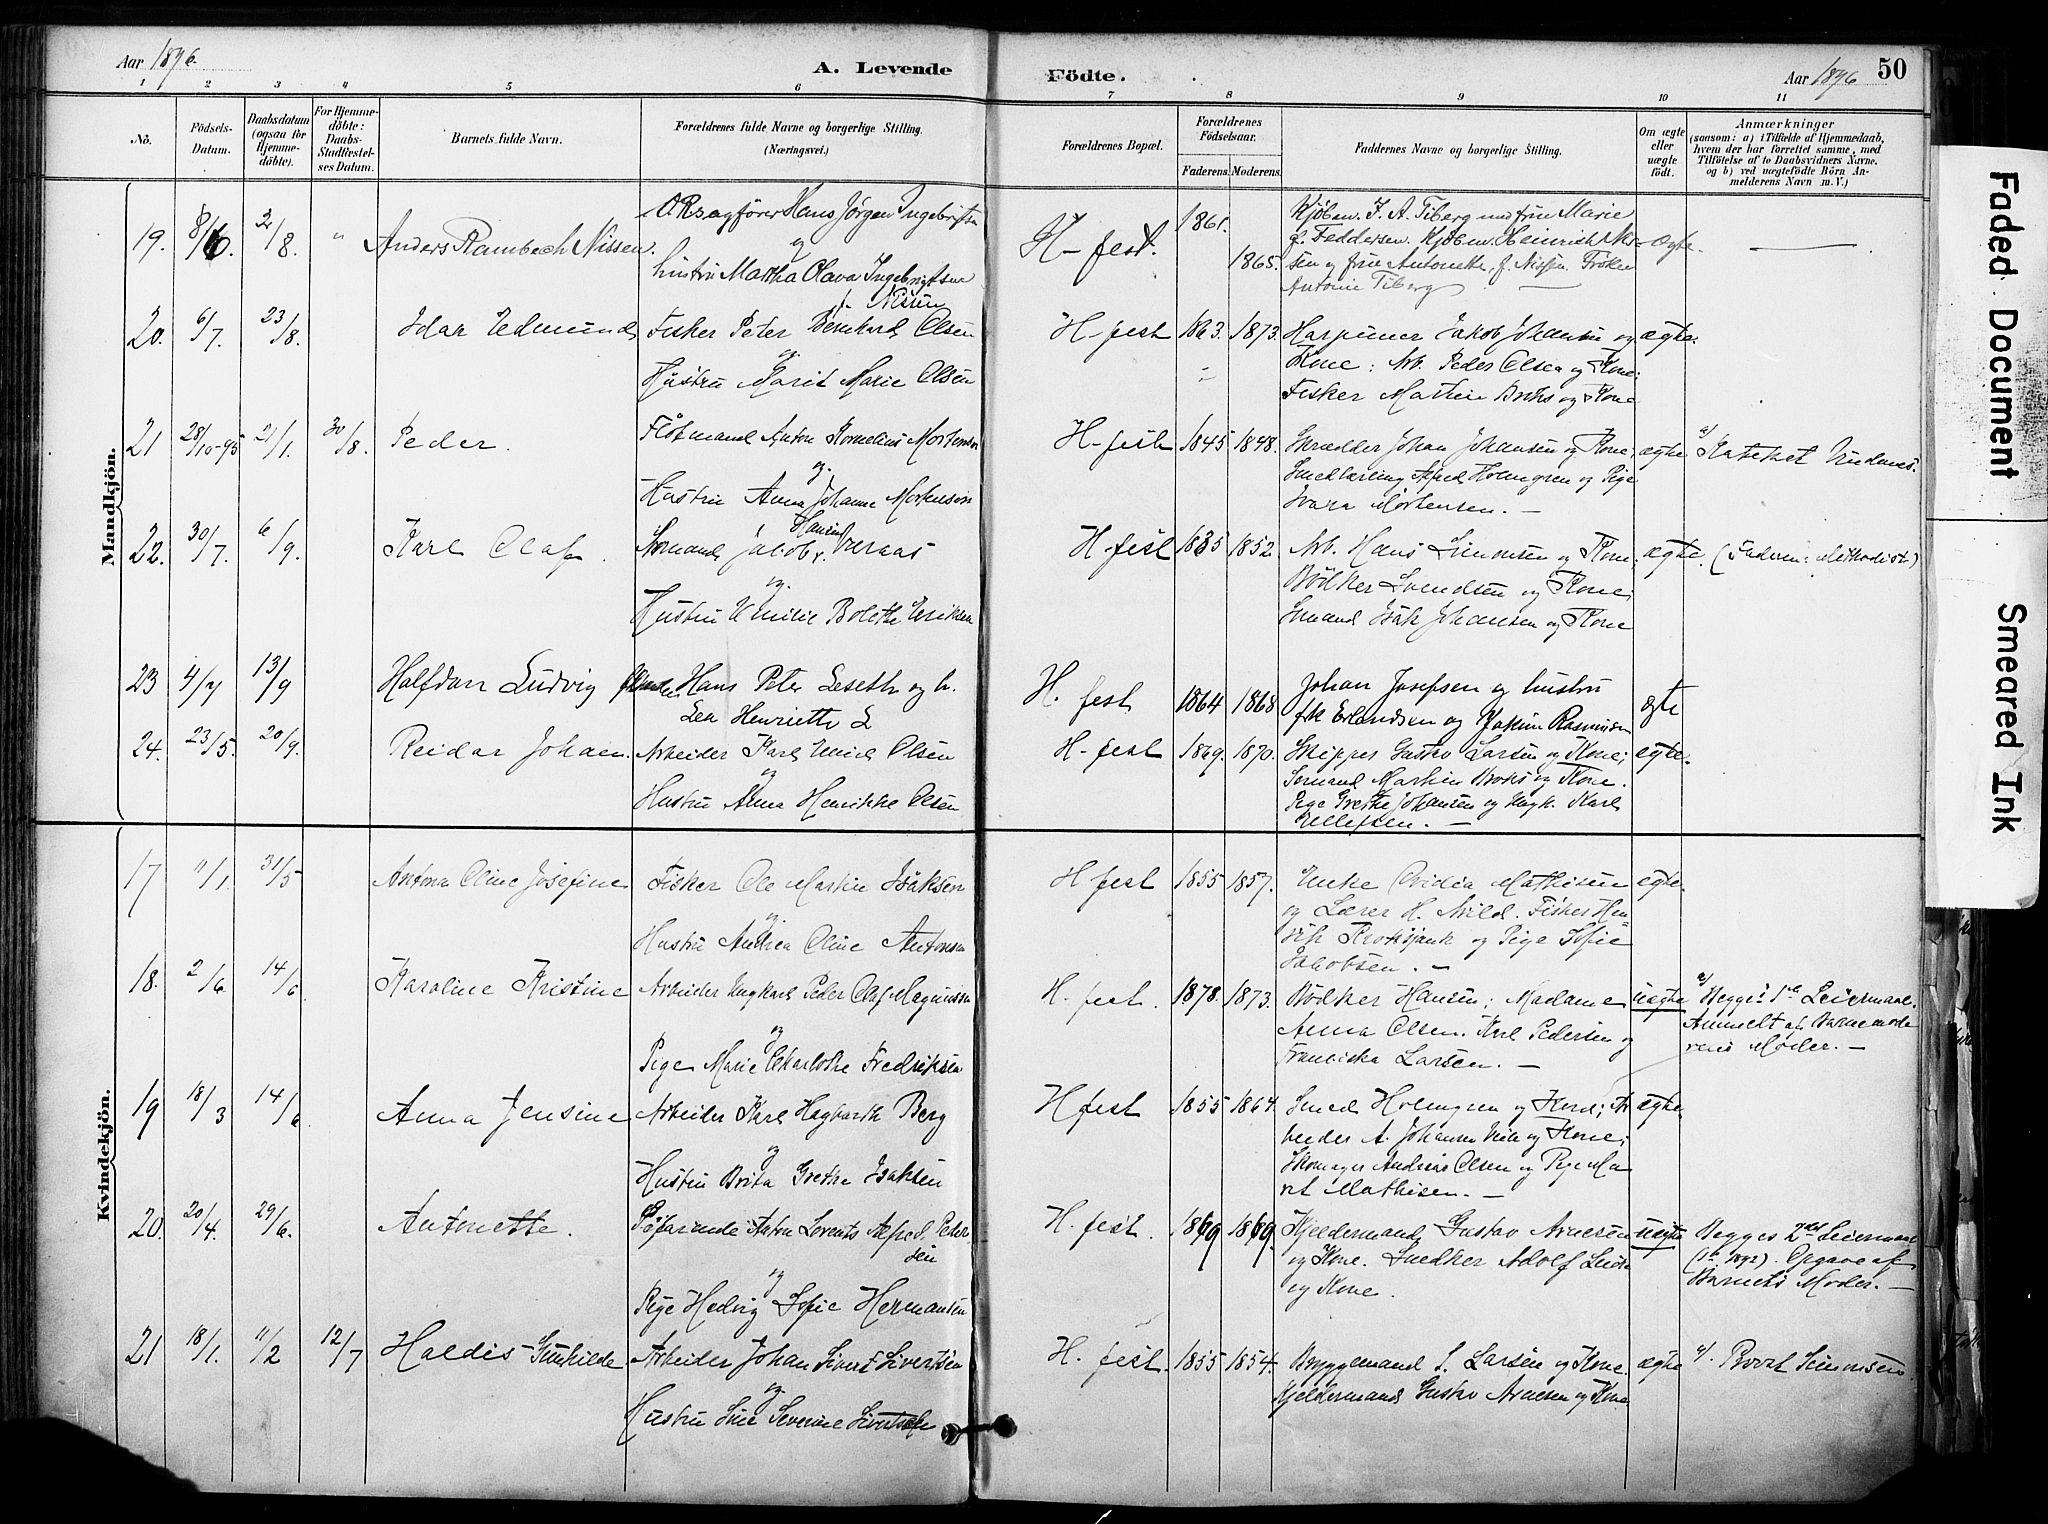 Aar 1896.
A. Levende
Födte.
Aar 1896
50
1 2 3 4 5 6 7 8 9 10 11
No.
Födsels-Datum.
Daabsdatum (ogsaa for Hjemmedöbte).
For Hjemmedöbte: Daabs-Stadfestelses Datum.
Barnets fulde Navn.
Forældrenes fulde Navne og borgerlige Stilling. (Næringsvei.)
Forældrenes Bopæl.
Forældrenes Födselsaar.
Faderens. Moderens.
Faddernes Navne og borgerlige Stilling.
Om ægte eller uægte födt.
Anmærkninger
(saasom: a) i Tilfælde af Hjemmedaab, hvem der har forrettet samme, med Tilföielse af to Daabsvidners Navne, og b) ved uægtefödte Börn Anmelderens Navn m. V.)
Mandkjön.
19. 8/6 2/8 " Anders Rambech Nissen.
ORsagfører Hans Jørgen Ingebrigtsen
og
hustru Martha Olava Ingebrigtsen
f. Nissen
H-fest. 1861. 1865.
Kjøbm. J. A. Tiberg med frue Marie
f. Feddersen. Kjøbm. Heinrich Nissen og frue Antonette, f. Nissen. Frøken
Antonie Tiberg
Ægte
20. 6/7. 23/8. Idar Edmund
Fisker Peter Bernhard Olsen
og
Hustru Marit Marie Olsen
H-fest 1863. 1873.
Harpuner Jakob Johansen og
Kone; Arb. Peder Olsen og Kone;
Fisker Mathin Boks og Kone
ægte.
21 28/10-95 21/1. 30/8. Peder.
Flötmand Anton Kornelius Mortensen
og
Hustru Anna Johanne Mortensen
H-fest 1845 1848.
Skrædder Johan Johansen og Kone,
Smedlærling Alfred Holmgren og Pige
Ivara Mortensen. —
ægte
a) Kateket
22. 30/7. 6/9. Karl Olaf.
Sömand Jakob Hansen
og
Hustru Emilie Bolette Eriksen
H-fest 1835 1852.
Arb. Hans Simonsen og Kone.
Bödker Svendsen og Kone,
Sömand Isak Johansen og Kone
ægte.
(Faderen: Methodist)
23 4/7 13/9 Halfdan Ludvig
Hans Peter Leseth og h.
Lea Henriette L
H. fest 1864 1868
Johan Josefsen og hustru
frk Erlandsen og Joakim Rasmussen
ægte
24. 23/5. 20/9. Reidar Johan.
Arbeider Karl Emil Olsen
og
Hustru Anna Henrikke Olsen
H-fest 1869. 1870.
Skipper Gustav Larsen og Kone;
Sömand Martin Boks og Kone.
Pige Grethe Johansen og Ungk. Karl
Ellefsen. —
ægte.
Kvindekjön.
17 11/1. 31/5 Antona Oline Josefine
Fisker Ole Martin Isaksen
og
Hustru Andrea Oline Antonsen
H fest 1855 1857.
Enke Ovidia Mathisen
og Lærer H. Arild. Fisker Henrik og Pige Sofie
Jakobsen. —
ægte.
18. 2/6 14/6 Karoline Kristine
Arbeider Ungkarl Peder Olaf Magnussen
og
Pige Marie Charlotte Fredriksen
H. fest. 1878. 1873.
Bödker Hansen; Madame
Anna Olsen. Karl Pedersen og
Franciska Larsen. —
uægte
a) Begges 1ste Leiermaal.
Anmeldt af Barnemoderens Moder. —
19 18/3 14/6 Anna Jensine
Arbeider Karl Hagbarth Berg
og
Hustru Brita Grethe Isaksen
H fest 1855 1864.
Smed Holmgren og Kone; Arbeider A. Johansen og Kone;
Skomager Andreas Olsen og Pige Marit Mathisen. —
ægte
20. 20/4. 29/6. Antonette.
Söfarende Anton Lorents Alfred Pedersen
og
Pige Hedvig Sofie Hermansen
H. fest. 1869 1869.
Kjeldermand Gustav Arnesen
og Kone. Snedker Adolf
og Kone.
uægte
Begges 2det Leiermaal
(1ste 1892). Opgave af
Barnets Moder. —
21 18/1. 11/2 12/7 Haldis Gunhilde
Arbeider Johan Sivert Sivertsen
og
Hustru Sine Severine Sivertsen
H. fest. 1855 1854.
Bryggemand S. Larsen og Kone.
Kjeldermand Gustav Arnesen og Kone
ægte
a). Simonsen.
Faded Document
Smeared Ink